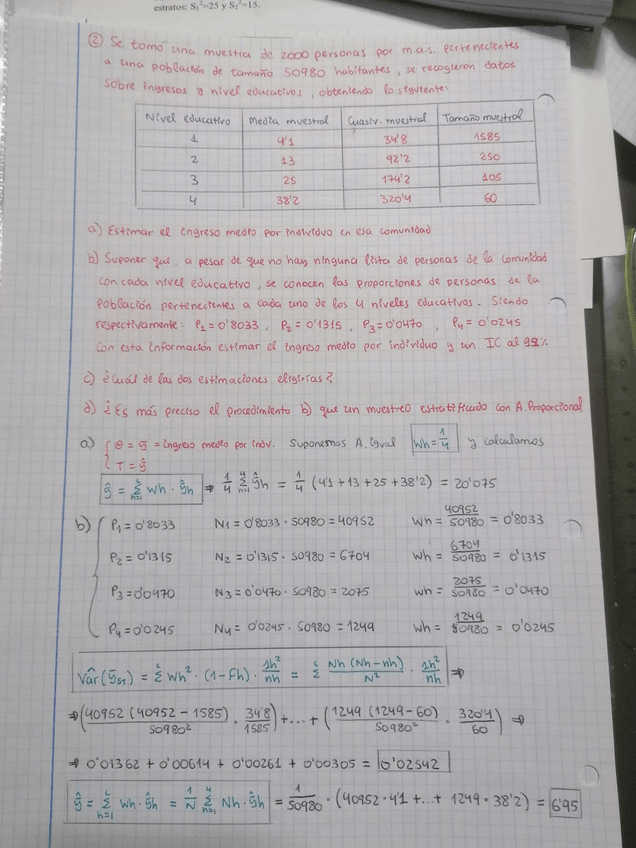 estratos: S₁²=25 y S₂²=15.
② Se tomó una muestra de 2000 personas por m.a.s. pertenecientes
a una población de tamaño 50980 habitantes, se recogieron datos
sobre ingresos y nivel educativos, obteniendo lo siguiente:
Nivel educativo | Media muestral | Cuasiv. muestral | Tamaño muestral
1 | 4'1 | 34'8 | 1585
2 | 13 | 92'2 | 250
3 | 25 | 174'2 | 105
4 | 38'2 | 320'4 | 60
a) Estimar el ingreso medio por individuo en esa comunidad
b) Suponer que, a pesar de que no hay ninguna lista de personas de la comunidad
con cada nivel educativo, se conocen las proporciones de personas de la
población pertenecientes a cada uno de los 4 niveles educativos. Siendo
respectivamente: P₁=0'8033, P₂=0'1315, P₃=0'0470, P₄=0'0245
Con esta información estimar el ingreso medio por individuo y un IC al 99%
c) ¿Cuál de las dos estimaciones eligirías?
d) ¿Es más preciso el procedimiento b) que un muestreo estratificado con A. Proporcional
a) { θ = ȳ = Ingreso medio por indv. Suponemos A. igual Wh = 1/4 y calculamos
T = ŷ
ŷ = Σ_{h=1}^{L} Wh · ŷh ⇒ 1/4 Σ_{h=1}^{4} ŷh = 1/4 (4'1 + 13 + 25 + 38'2) = 20'075
b) { P₁=0'8033 N₁ = 0'8033 · 50980 = 40952 Wh = 40952/50980 = 0'8033
P₂ = 0'1315 N₂ = 0'1315 · 50980 = 6704 Wh = 6704/50980 = 0'1315
P₃ = 0'0470 N₃ = 0'0470 · 50980 = 2075 Wh = 2075/50980 = 0'0470
P₄ = 0'0245 N₄ = 0'0245 · 50980 = 1249 Wh = 1249/50980 = 0'0245
Var̂(ȳST) = Σ^L Wh² · (1-fh) · ŝh²/nh = Σ^L Nh (Nh-nh)/N² · ŝh²/nh ⇒
⇒ (40952 (40952 - 1585)/50980² · 34'8/1585) + ... + (1249 (1249-60)/50980² · 320'4/60) ⇒
⇒ 0'01362 + 0'00614 + 0'00261 + 0'00305 = 0'02542
ŷ = Σ_{h=1}^{L} Wh · ŷh = 1/N Σ_{h=1}^{4} Nh · ŷh = 1/50980 · (40952 · 4'1 + ... + 1249 · 38'2) = 6'95